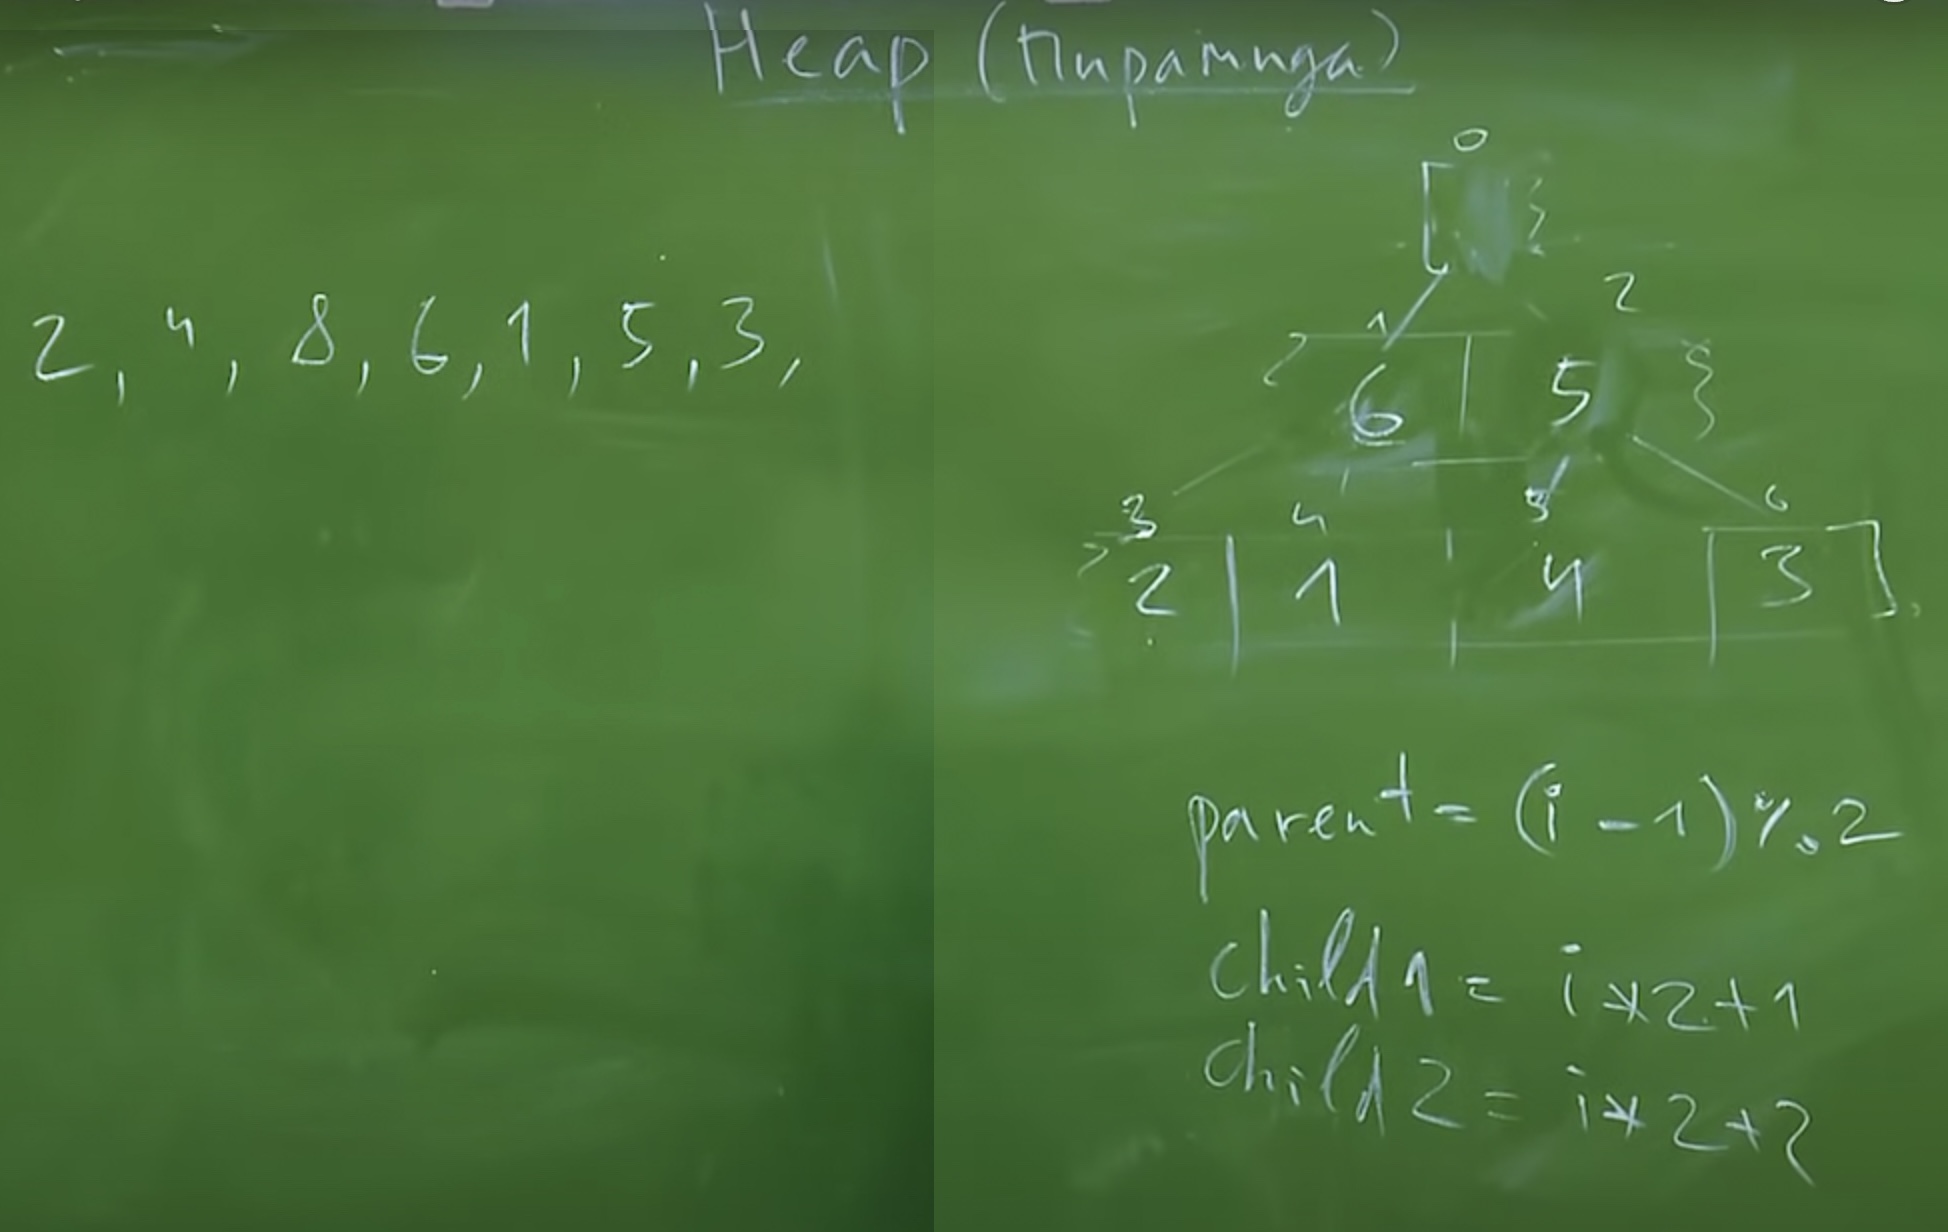 Heap (Пирамида)
2, 4, 8, 6, 1, 5, 3,
0
1 2
6 5
3 4 5 6
2 1 4 3
parent = (i - 1) % 2
child 1 = i * 2 + 1
child 2 = i * 2 + 2